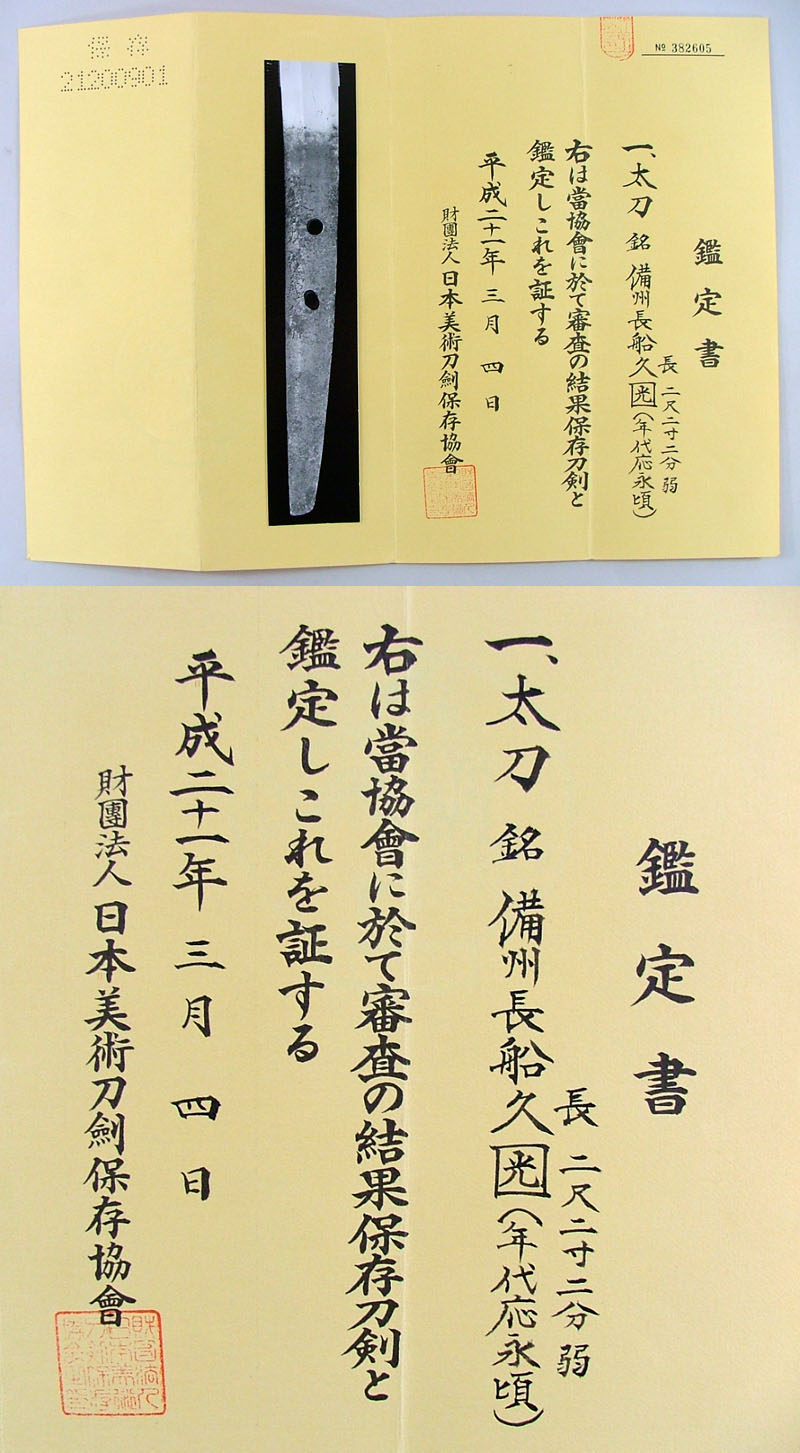 保存
21200901
№ 382605
鑑定書
一、太刀 銘 備州長船久光(年代応永頃)
長 二尺二寸二分弱
右は當協會に於て審査の結果保存刀剣と
鑑定しこれを証する
平成二十一年 三月 四日
財團法人 日本美術刀劍保存協會
鑑定書
一、太刀 銘 備州長船久光(年代応永頃)
長 二尺二寸二分弱
右は當協會に於て審査の結果保存刀剣と
鑑定しこれを証する
平成二十一年 三月 四日
財團法人 日本美術刀劍保存協會